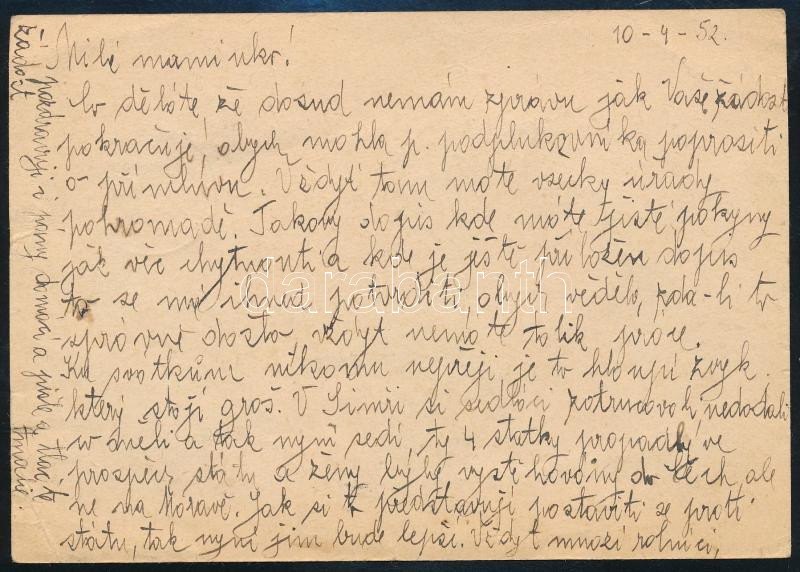 10-4-52.
Milé maminkr!
Co děláte že dosud nemám zprávu ják Vaše žádost
pokračuje, abych mohla p. podplukovníka poprositi
o přímluvu. Vždyť tam máte všecky úřady
pohromadě. Takový dopis kde máte jisté pokyny
ják věc chytnouti a kde je ještě přiložen dopis
to se má ihned potvrditi, abych věděla, zda-li to
správně došlo vždyť nemáte tolik práce.
Ku svátkům nikomu nepřeji je to hloupí zvyk
který stojí groš. V Simři si sedláci nedostali
a tak nyní sedí, ty 4 statky propadly ve
prospěch státu a ženy byly vystěhovány do Čech ale
ne na Moravě. Jak si představují postaviti se proti
státu, tak nyní jim bude lepší. Vždyť mnozí rolníci,
žádost
pozdravuji i pány doma a pište a
darabanth